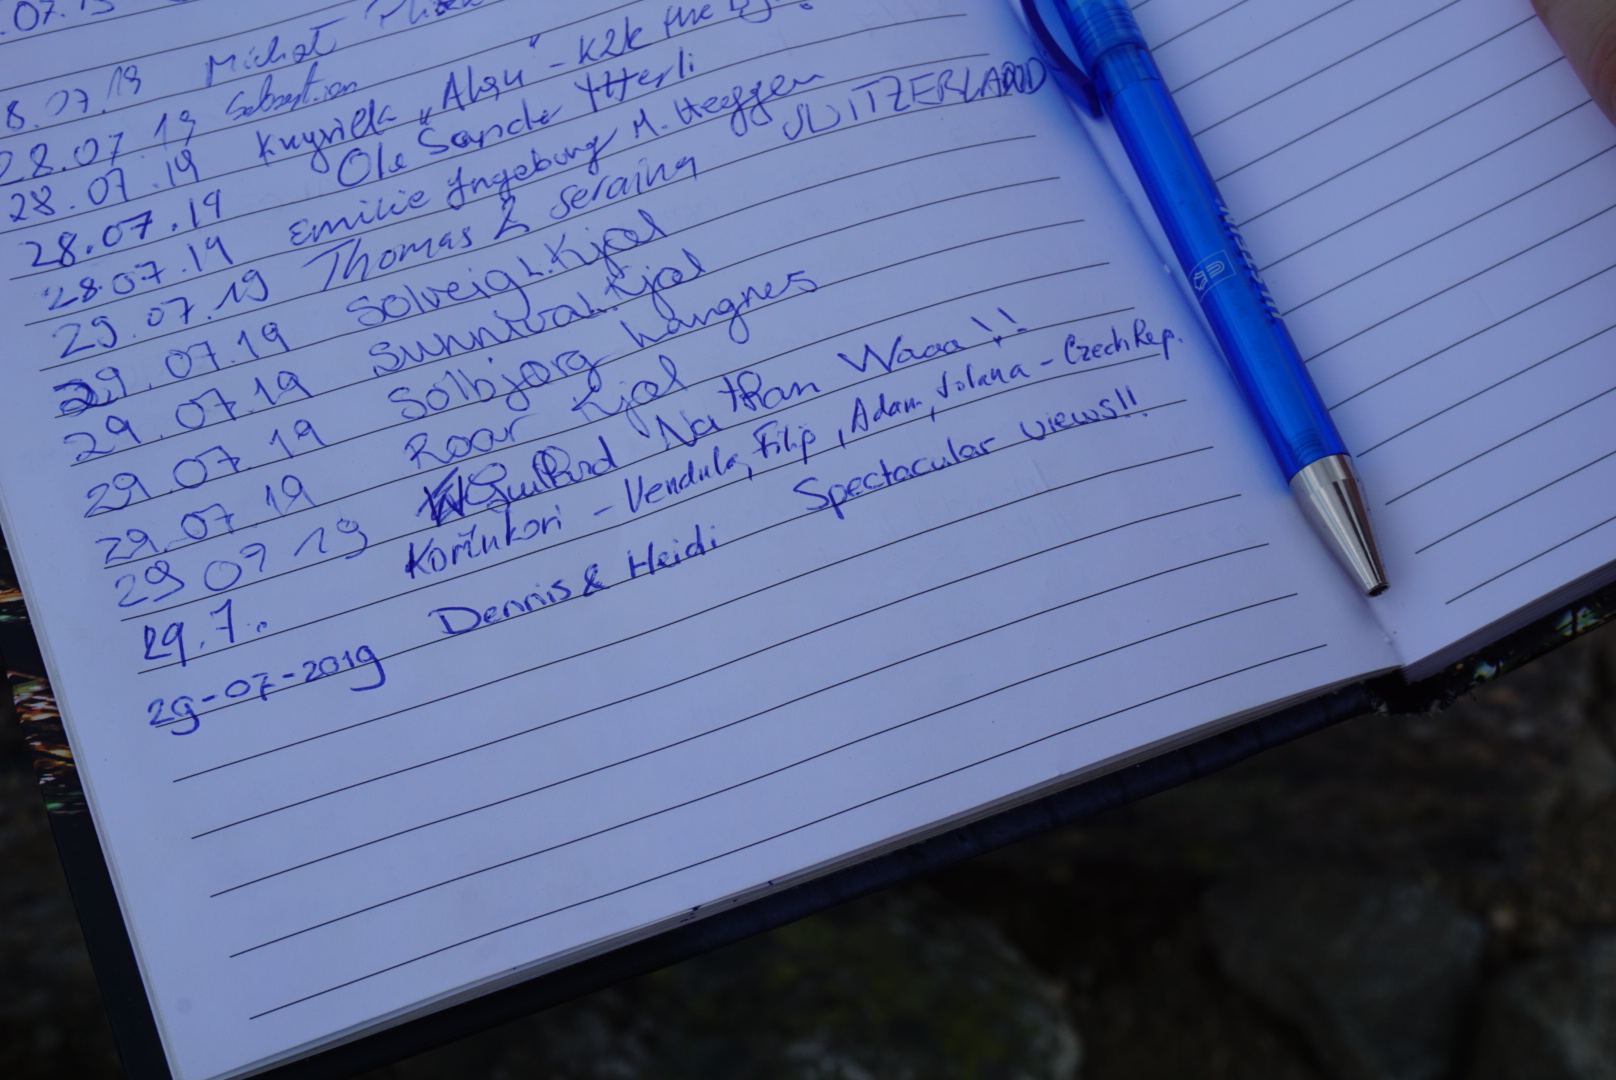 .07.19
8.07.19 Michał
28.07.19 Sebastian
28.07.19 "Alsu" - K2K the
28.07.19 Ole Sander Ytterli
28.07.19 Emilie Ingeborg M. Heggen
29.07.19 Thomas & Seraina SWITZERLAND
29.07.19 Solveig L. Kjøl
29.07.19 Sunniva L. Kjøl
29.07.19 Solbjørg Langnes
29.07.19 Roar Kjøl
29 07 19 Nathan Waaa !!
29.7. - Vendula, Filip, Adam, Jolana - Czech Rep.
29-07-2019 Dennis & Heidi Spectacular views!!